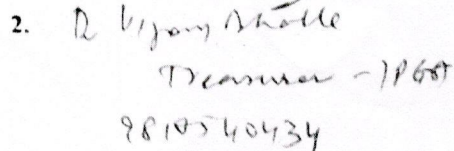 2. Dr Vijay Bhalle
Treasurer - IPGA
9810540434